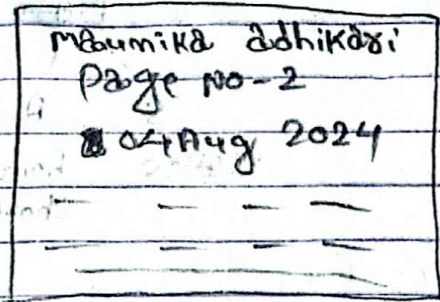 Maumika adhikari
Page No-2
04 Aug 2024